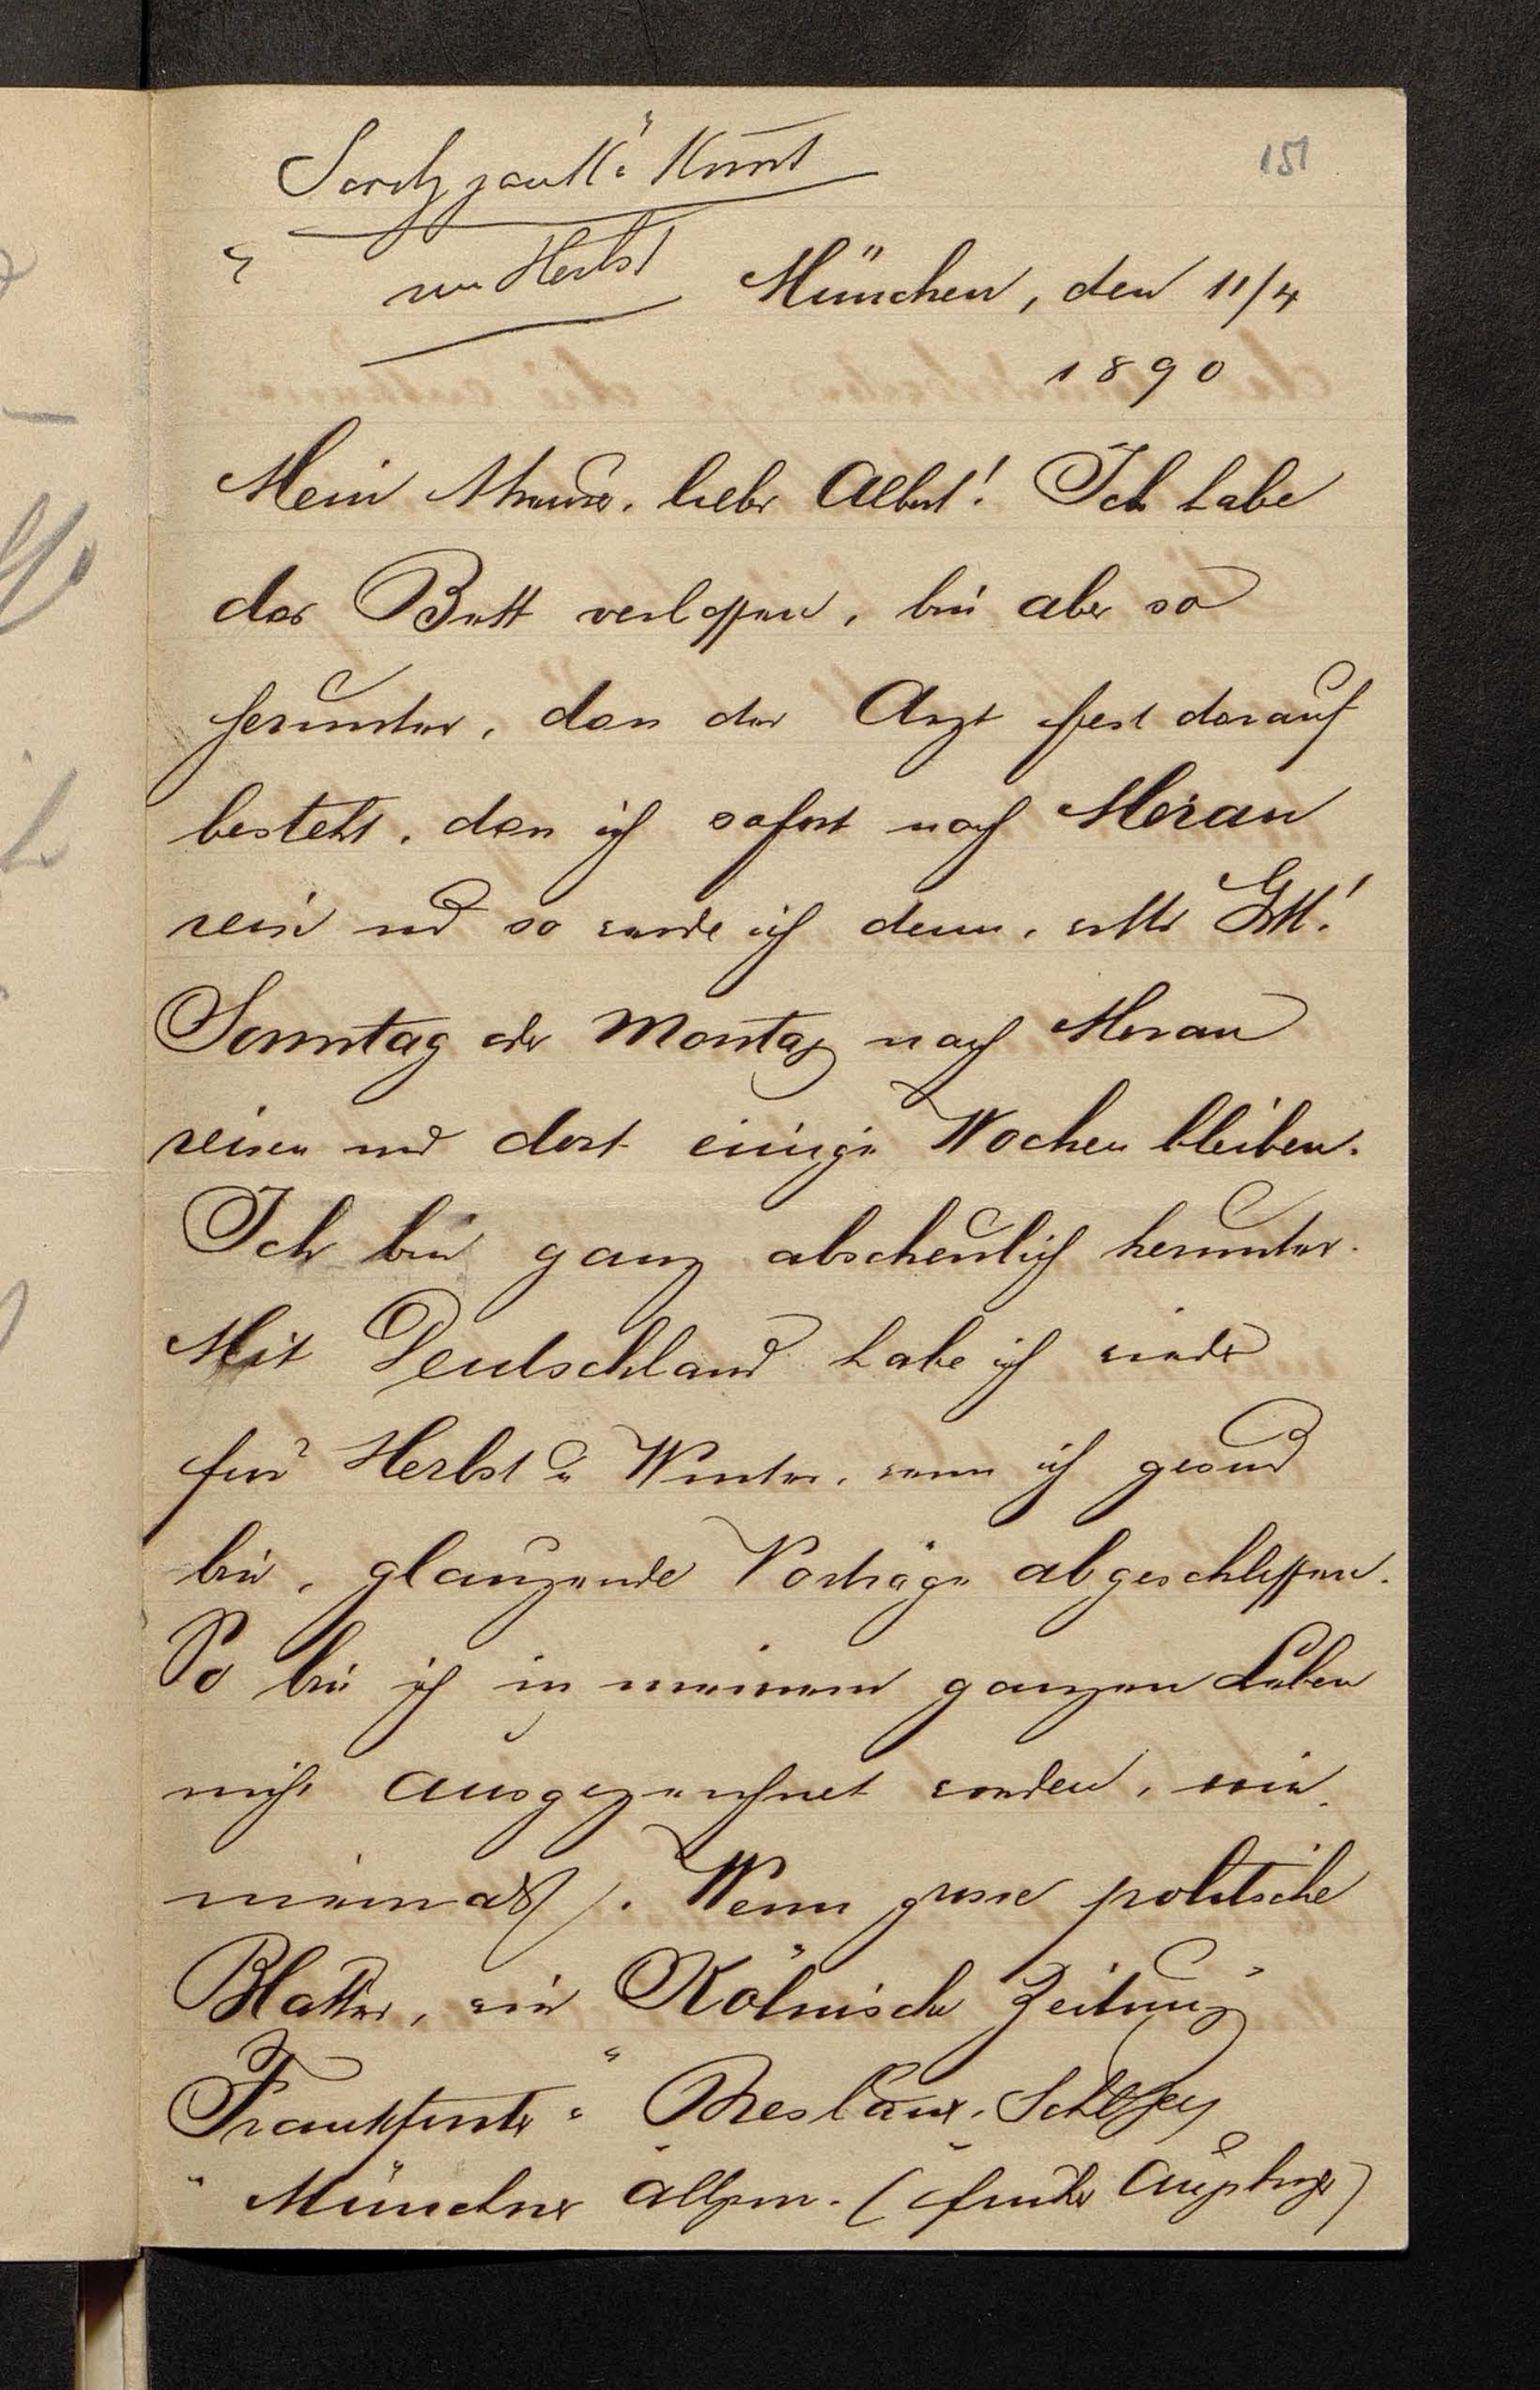 151
im Herbst
München, den 11/4
1890
Mein theurer, lieber Albert! Ich habe
das Bett verlassen, bin aber so
herunter, dass der Arzt fest darauf
besteht, dass ich sofort nach Meran
reise und so werde ich denn, walte Gott!
Sonntag oder Montag nach Meran
reisen und dort einige Wochen bleiben.
Ich bin ganz abscheulich herunter.
Mit Deutschland habe ich wieder
für Herbst u Winter, wenn ich gesund
bin, glänzende Vorträge abgeschlossen.
So bin ich in meinem ganzen Leben
nicht ausgezeichnet worden, wie
Wenn grosse politische
Blätter, wie Kölnische Zeitung
Frankfurter " Breslauer, Schles
" Münchner Allgem. (früher Augsburger)